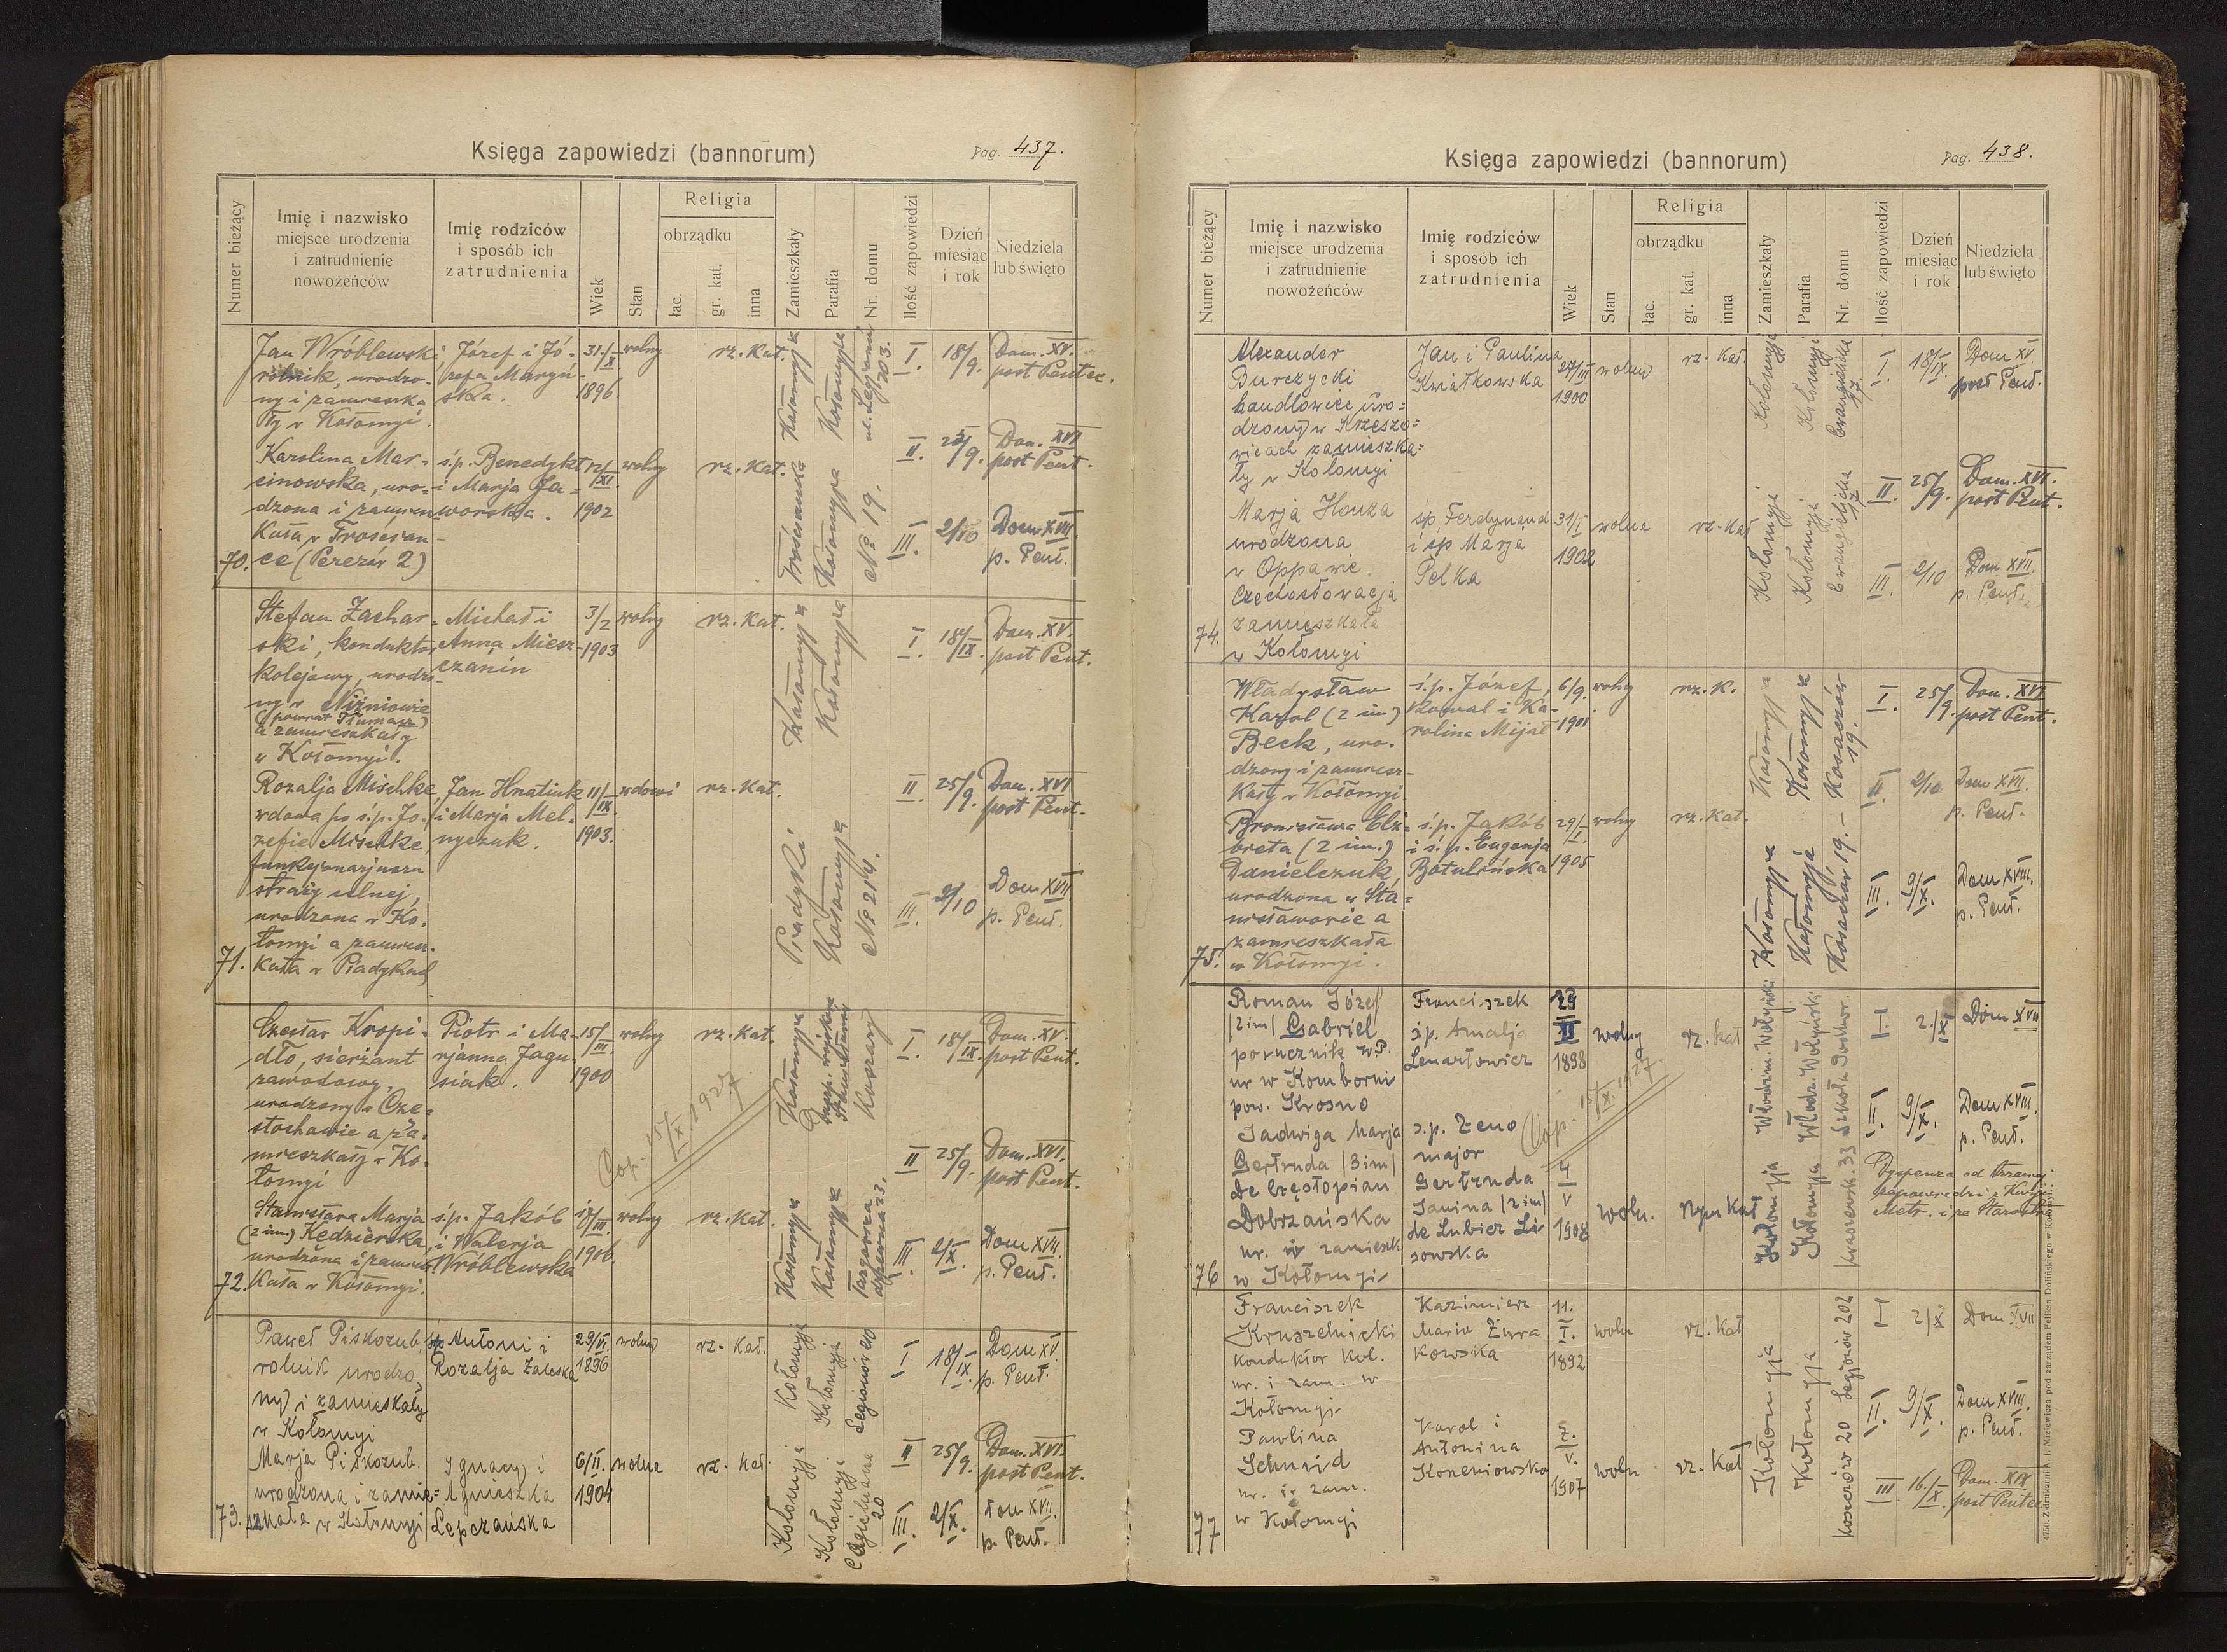 Księga zapowiedzi (bannorum)
Pag. 437.
Numer bieżący
Imię i nazwisko
miejsce urodzenia
i zatrudnienie
nowożeńców
Imię rodziców
i sposób ich
zatrudnienia
Wiek
Stan
Religia
obrządku
łac.
gr. kat.
inna
Zamieszkały
Parafia
Nr. domu
Ilość zapowiedzi
Dzień
miesiąc
i rok
Niedziela
lub święto
70.
Jan Wróblewski
rolnik, urodzo-
ny i zamieszka
ły w Kołomyi.
Józef i Jó-
zefa Maryń-
ska.
31./X
1896
wolny
rz. Kat.
Kołomyja
Kołomyja
ul. Legionów
203.
I.
18/9.
Dom. XV.
post Pentec.
Karolina Mar-
cinowska, uro-
dzona i zamiesz
kała w Trościan-
ce (Perezów 2)
ś.p. Benedykt
i Marja Ja-
worska.
12/XI.
1902
wolny
rz. Kat.
Kołomyja
№ 19.
II.
25/9.
Dom. XVI
post Pent.
III.
2/10
Dom XVII
p. Pent.
71.
Stefan Zachar-
ski, konduktor
kolejowy, urodzo-
ny w Niżniowie
(powiat Tłumacz)
a zamieszkały
w Kołomyi.
Michał i
Anna Miesz-
czanin
3/2
1903
wolny
rz. Kat.
Kołomyja
Kołomyja
I.
18/IX.
Dom. XV.
post Pent.
Rozalja Mischke
wdowa po ś.p. Jó-
zefie Mischke,
funkcjonarjusza
straży celnej,
urodzona w Ko-
łomyi a zamiesz-
kała w Piadykach
Jan Hnatiuk
i Marja Mel-
nyczuk.
11/IX.
1903.
wdowi
rz. Kat.
Piadyki
Kołomyja
№ 214.
II
25/9.
Dom. XVI
post Pent.
III.
2/10
Dom XVII
p. Pent.
72.
Czesław Kropi-
dło, sierżant
zawodowy,
urodzony w Czę-
stochowie a za-
mieszkały w Ko-
łomyi
Piotr i Ma-
rjanna Jagu-
siak.
15/III.
1900
wolny
rz. Kat.
Kołomyja
Koszary
I.
18/IX.
Dom. XV.
post Pent.
Cop. 15/X. 1927
Stanisława Marja
(2 im.) Kędzierska,
urodzona i zamiesz
kała w Kołomyi.
ś.p. Jakób
i Walerja
Wróblewska
III.
1906.
wolny
rz. Kat.
Kołomyja
Kołomyja
Targowica
23.
II
25/9.
Dom. XVI.
post Pent.
III.
2/X.
Dom XVII.
p. Pent.
73.
Paweł Piskozub,
rolnik urodzo
ny i zamieszkały
w Kołomyi
śp Antoni i
Rozalja Zaleska
29/VI.
1896
wolny
rz. Kat.
Kołomyja
Kołomyja
Legionów 20
I
18/IX.
Dom XV
p. Pent.
Marja Piskozub.
urodzona i zamie-
szkała w Kołomyi
Ignacy i
Agnieszka
Lepczańska
6/II.
1904
wolna
rz. kat.
Kołomyja
Kołomyja
20
II
25/9.
Dom. XVI.
post Pent.
III.
2/X.
Dom XVII.
p. Pent.
Księga zapowiedzi (bannorum)
Pag. 438.
Numer bieżący
Imię i nazwisko
miejsce urodzenia
i zatrudnienie
nowożeńców
Imię rodziców
i sposób ich
zatrudnienia
Wiek
Stan
Religia
obrządku
łac.
gr. kat.
inna
Zamieszkały
Parafia
Nr. domu
Ilość zapowiedzi
Dzień
miesiąc
i rok
Niedziela
lub święto
74.
Alexander
Burczycki
handlowiec uro=
dzony w Krzeszo=
wicach zamieszka=
ły w Kołomyi
Jan i Paulina
Kwiatkowska
27/III
1900
wolny
rz. Kat.
Kołomyja
Kołomyja
Ewangielicka
17
I.
18/IX.
Dom XV.
post Pent.
Marja Houza
urodzona
w Oppawie
Czechosłowacja
zamieszkała
w Kołomyi
śp. Ferdynand
i śp Marja
Pelka
31/I
1902
wolna
rz-Kat
Kołomyja
Kołomyja
Ewangielicka
17
II.
25/9.
Dom. XVI.
post Pent.
III.
2/10
Dom XVII.
p. Pent.
75.
Władysław
Karol (2 im)
Beck, uro-
dzony i zamiesz-
kały w Kołomyi
ś.p. Józef,
kowal i Ka-
rolina Mijał
6/9.
1901
wolny
rz. K.
Kołomyja
Kołomyja
Kosaczów
19.
I.
25/9.
Dom. XVI
post Pent.
Bronisława Elż-
bieta (2 im.)
Danielczuk,
urodzona w Sta=
nisławowie a
zamieszkała
w Kołomyi.
ś.p. Jakób
i ś.p. Eugenja
Batulińska
29/I.
1905
wolny
rz. Kat.
Kołomyja
Kołomyja
Kosaczów 19.
II.
2/10
Dom XVII.
p. Pent.
III.
9/X.
Dom XVIII.
p. Pent.
76
Roman Józef
/2 im/ Gabriel
porucznik W.P.
ur w Komborni
pow. Krosno
Franciszek
ś.p. Amalja
Lenartowicz
1898
wolny
rz. kat
Włodzim. Wołyński
Włodz. Wołyński
I
2./X
Dom XVII
Cop. 15/X. 1927.
Jadwiga Marja
Gertruda /3 im/
de Częstopian
Dobrzańska
ur. i zamieszk
w Kołomyi
ś.p. Zeno
major
Gertruda
Janina /2 im/
de Lubicz Li
sowska
4
V
1908
woln.
rzym Kat
Kołomyja
Kołomyja
Kraszewsk. 33
II.
9/X.
Dom XVIII.
p. Pent.
Dyspenza od trzeciej
zapowiedzi z Kurji
Metr. i ze Starostwa
77
Franciszek
Kruszelnicki
Konduktor kol.
ur. i zam. w
Kołomyi
Kazimierz
Maria Żura
kowska
11.
I.
1892
woln
rz. Kat
Kołomyja
Kołomyja
Legionów 202
I
2/X.
Dom XVII
Pawlina
Schmid
ur. i zam.
w Kołomyi
Karol i
Antonina
Koreniowska
V.
1907
woln
rz. Kat
20
II.
9/X.
Dom XVIII.
p. Pent.
III.
16./X.
Dom. XIX
post Pentec
4750. Z drukarni A. J. Miziewicza pod zarządem Feliksa Dolińskiego w Kołomyi.